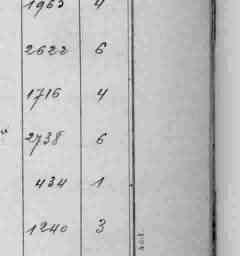 1963 4
2622 6
1716 4
2738 6
434 1
1240 3